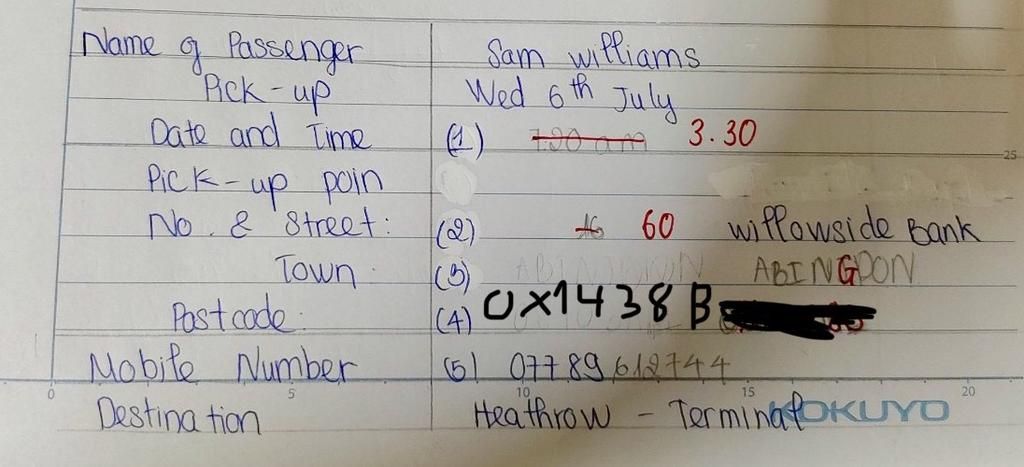 Name of Passenger Sam williams
Pick-up Wed 6th July
Date and Time (1) 7.00 am 3.30
25
Pick-up poin
No. & Street: (2) 16 60 willowside Bank
Town (3) ABINGDON
Postcode: (4) 0x1438B
Mobile Number (5) 07789612744
0 5 10 15 20
Destination Heathrow - Terminal
KOKUYO